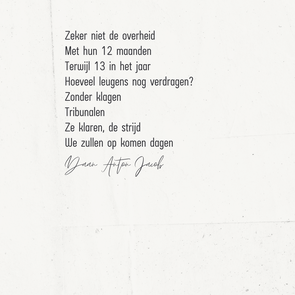 Zeker niet de overheid
Met hun 12 maanden
Terwijl 13 in het jaar
Hoeveel leugens nog verdragen?
Zonder klagen
Tribunalen
Ze klaren, de strijd
We zullen op komen dagen
Daan Anton Jacobs